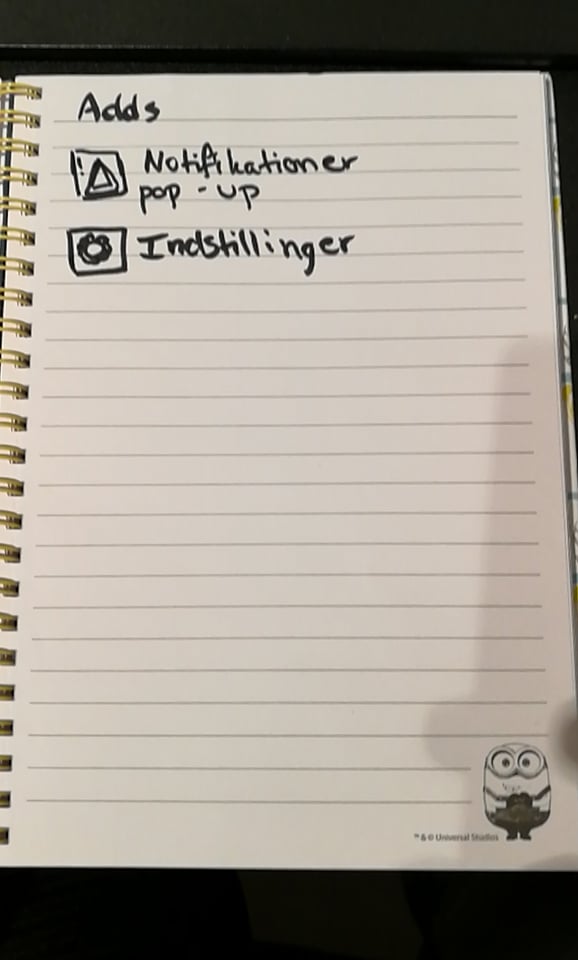 Adds
Notifikationer
pop - up
Indstillinger
™ & © Universal Studios